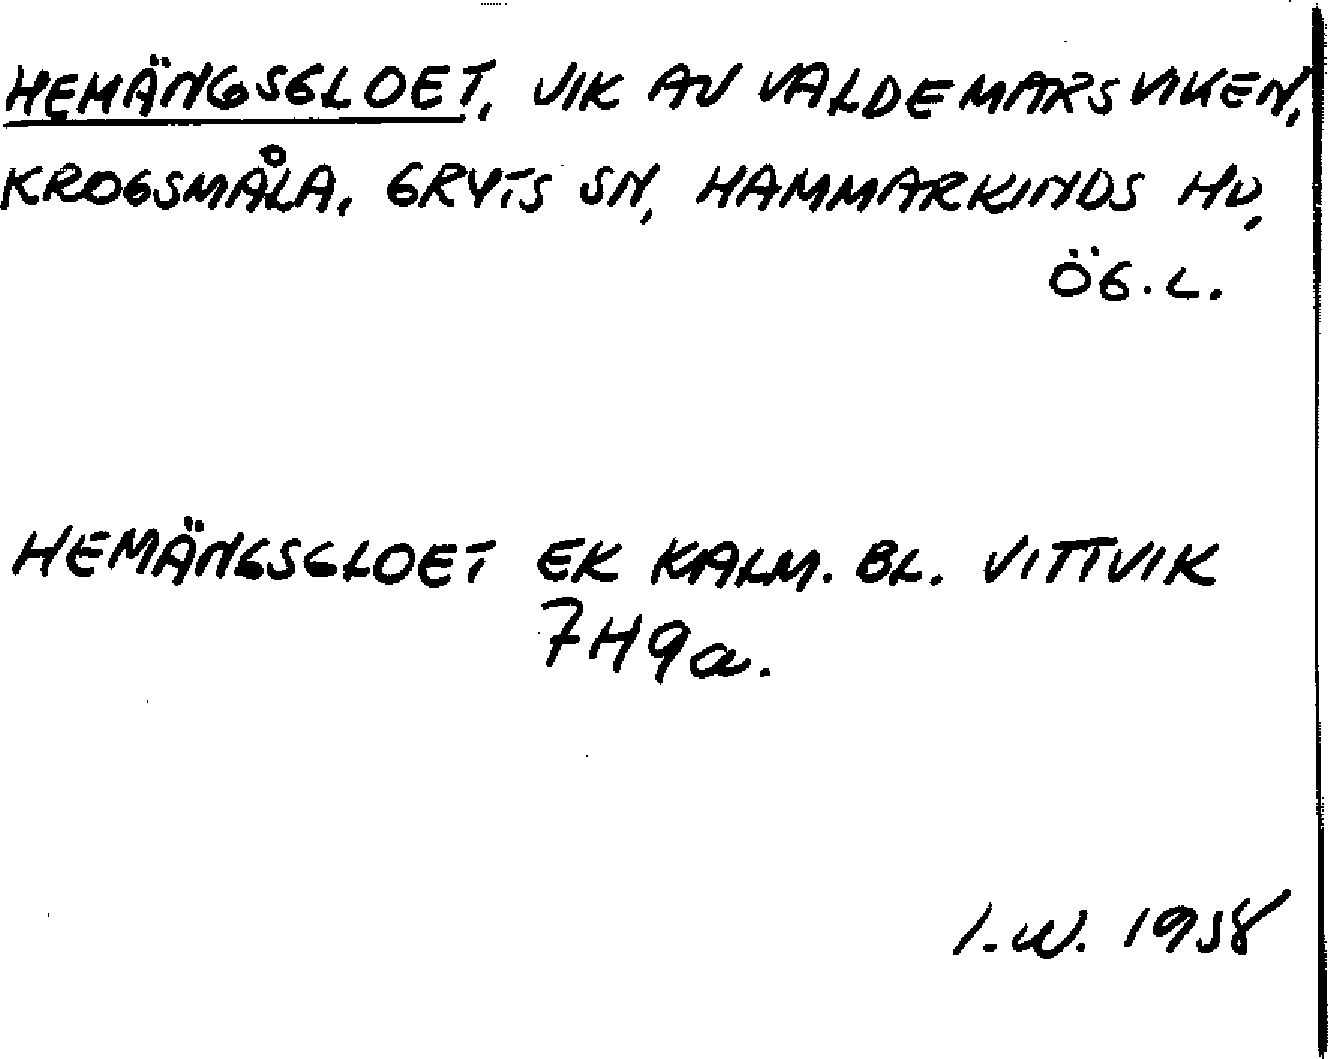 HEMÄNGSGLOET, VIK AV VALDEMARSVIKEN,
KROGSMÅLA, GRYTS SN, HAMMARKINDS HD,
ÖG.L.
HEMÄNGSGLOET EK KALM. BL. VITTVIK
7H9a.
I.W. 1958